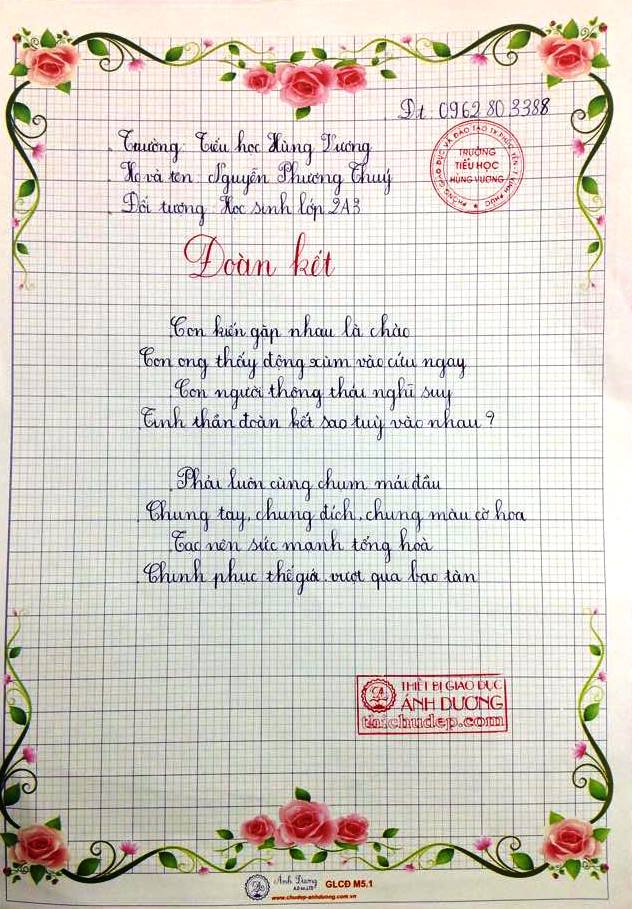 Đt: 0962 80 3388
Trường: Tiểu học Hùng Vương
Họ và tên: Nguyễn Phương Thuý
Đối tượng: Học sinh lớp 2A3
PHÒNG GIÁO DỤC VÀ ĐÀO TẠO TX PHÚC YÊN - T. VĨNH PHÚC
TRƯỜNG
TIỂU HỌC
HÙNG VƯƠNG
Đoàn kết
Con kiến gặp nhau là chào
Con ong thấy động xùm vào cứu ngay
Con người thông thái nghĩ suy
Tinh thần đoàn kết sao tuỳ vào nhau?
Phải luôn cùng chụm mái đầu
Chung tay, chung đích, chung màu cờ hoa
Tạo nên sức mạnh tổng hoà
Chinh phục thế giới vượt qua bạo tàn
THIẾT BỊ GIÁO DỤC
ÁNH DƯƠNG
thichudep.com
Ánh Dương
GLCĐ M5.1
www.chudep-anhduong.com.vn